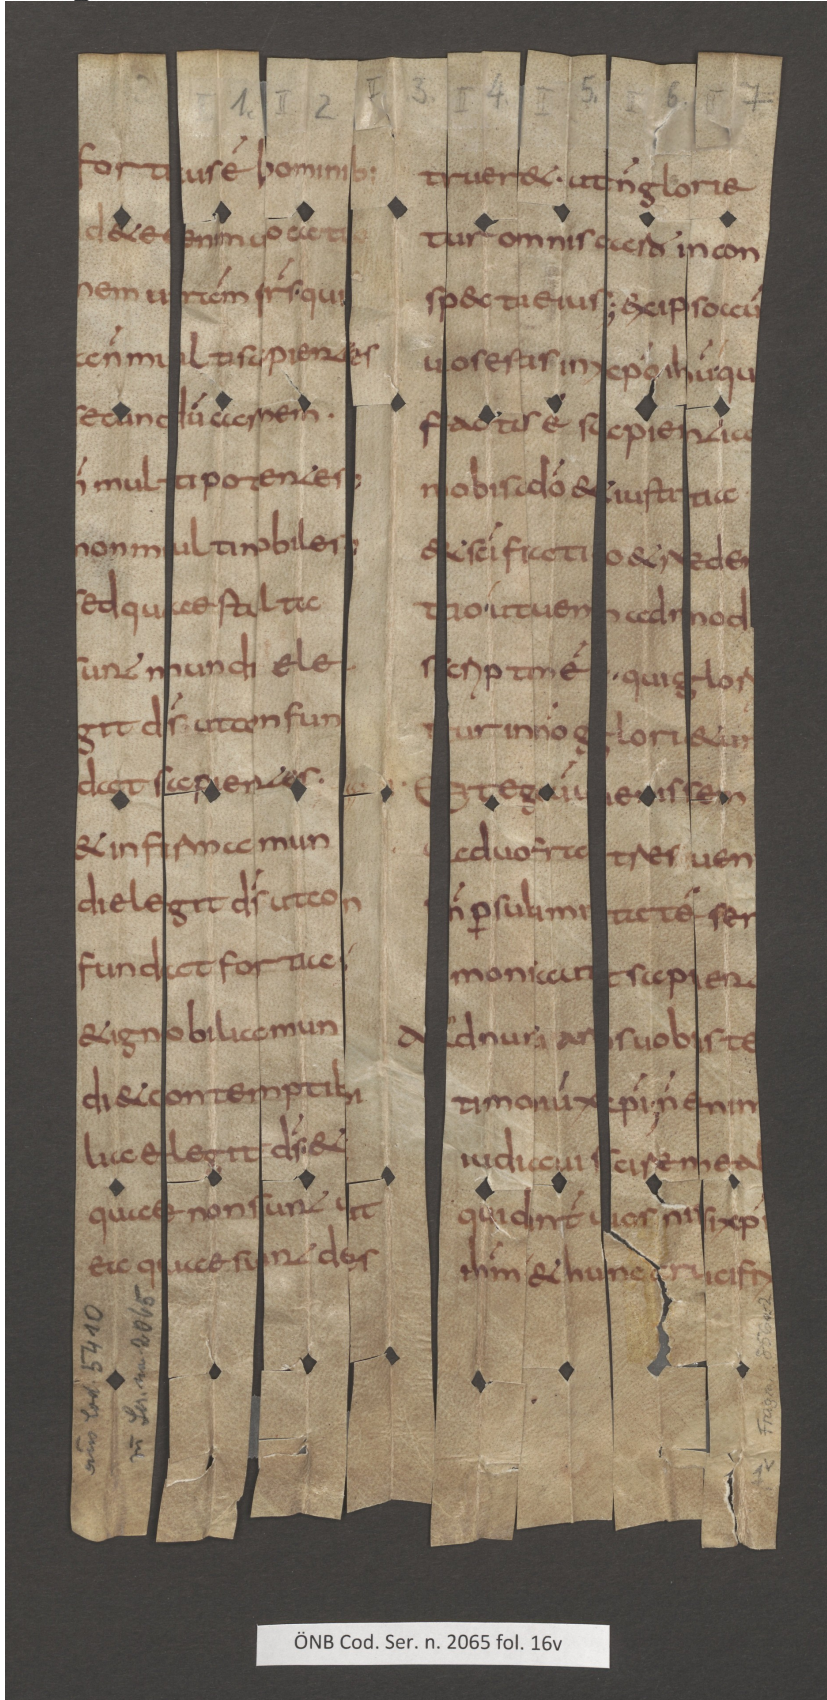 1. II 2 II 3. II 4. II 5. II 6. II 7
fortius ē hominib;
dete enim uocatio
nem ur̄am fr̄s qui
a n̄ multi sapientes
secundū carnem.
n̄ multi potentes;
non multi nobiles;
sed quae stulta
sunt mundi ele
git d̄s ut confun
dat sapientes.
& infirma mun
di elegit d̄s ut con
fundat fortia;
& ignobilia mun
di & contemptibi
lia elegit d̄s; &
quae non sunt ut
ea quae sunt des
truer&. ut n̄ glorie
tur omnis caro in con
spectu eius; ex ipso aū
uos estis in xp̄o ihū qu
factus ē sapientia
nobis a dō & iustitia
& sc̄ificatio & redem
tio ut quem admod
scriptū ē. qui glori
tur in dn̄o glori&ur
Et ego cū uenissem
ad uos fratres uen
n̄ p̱ sublimitatē ser
monis aut sapient
adnuntians uobis te
timoniū xp̄i; n̄ enim
iudicaui scire me al
quid int̄ uos nisi xp̄
ihm̄ & hunc crucifix
Cod. 5410
Ser. n. 2065
ÖNB Cod. Ser. n. 2065 fol. 16v